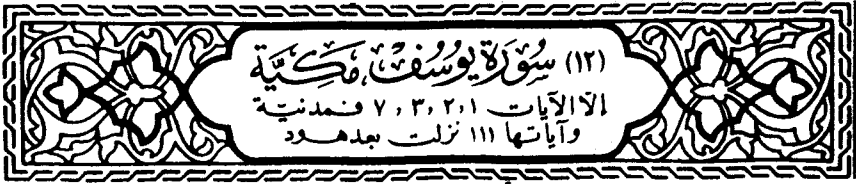 (١٢) سُورَة يُوسُفْ مَكِيَّة
إلّا الآيات ١، ٢، ٣، ٧ فمدنيّة
وآياتها ١١١ نزلت بعد هود